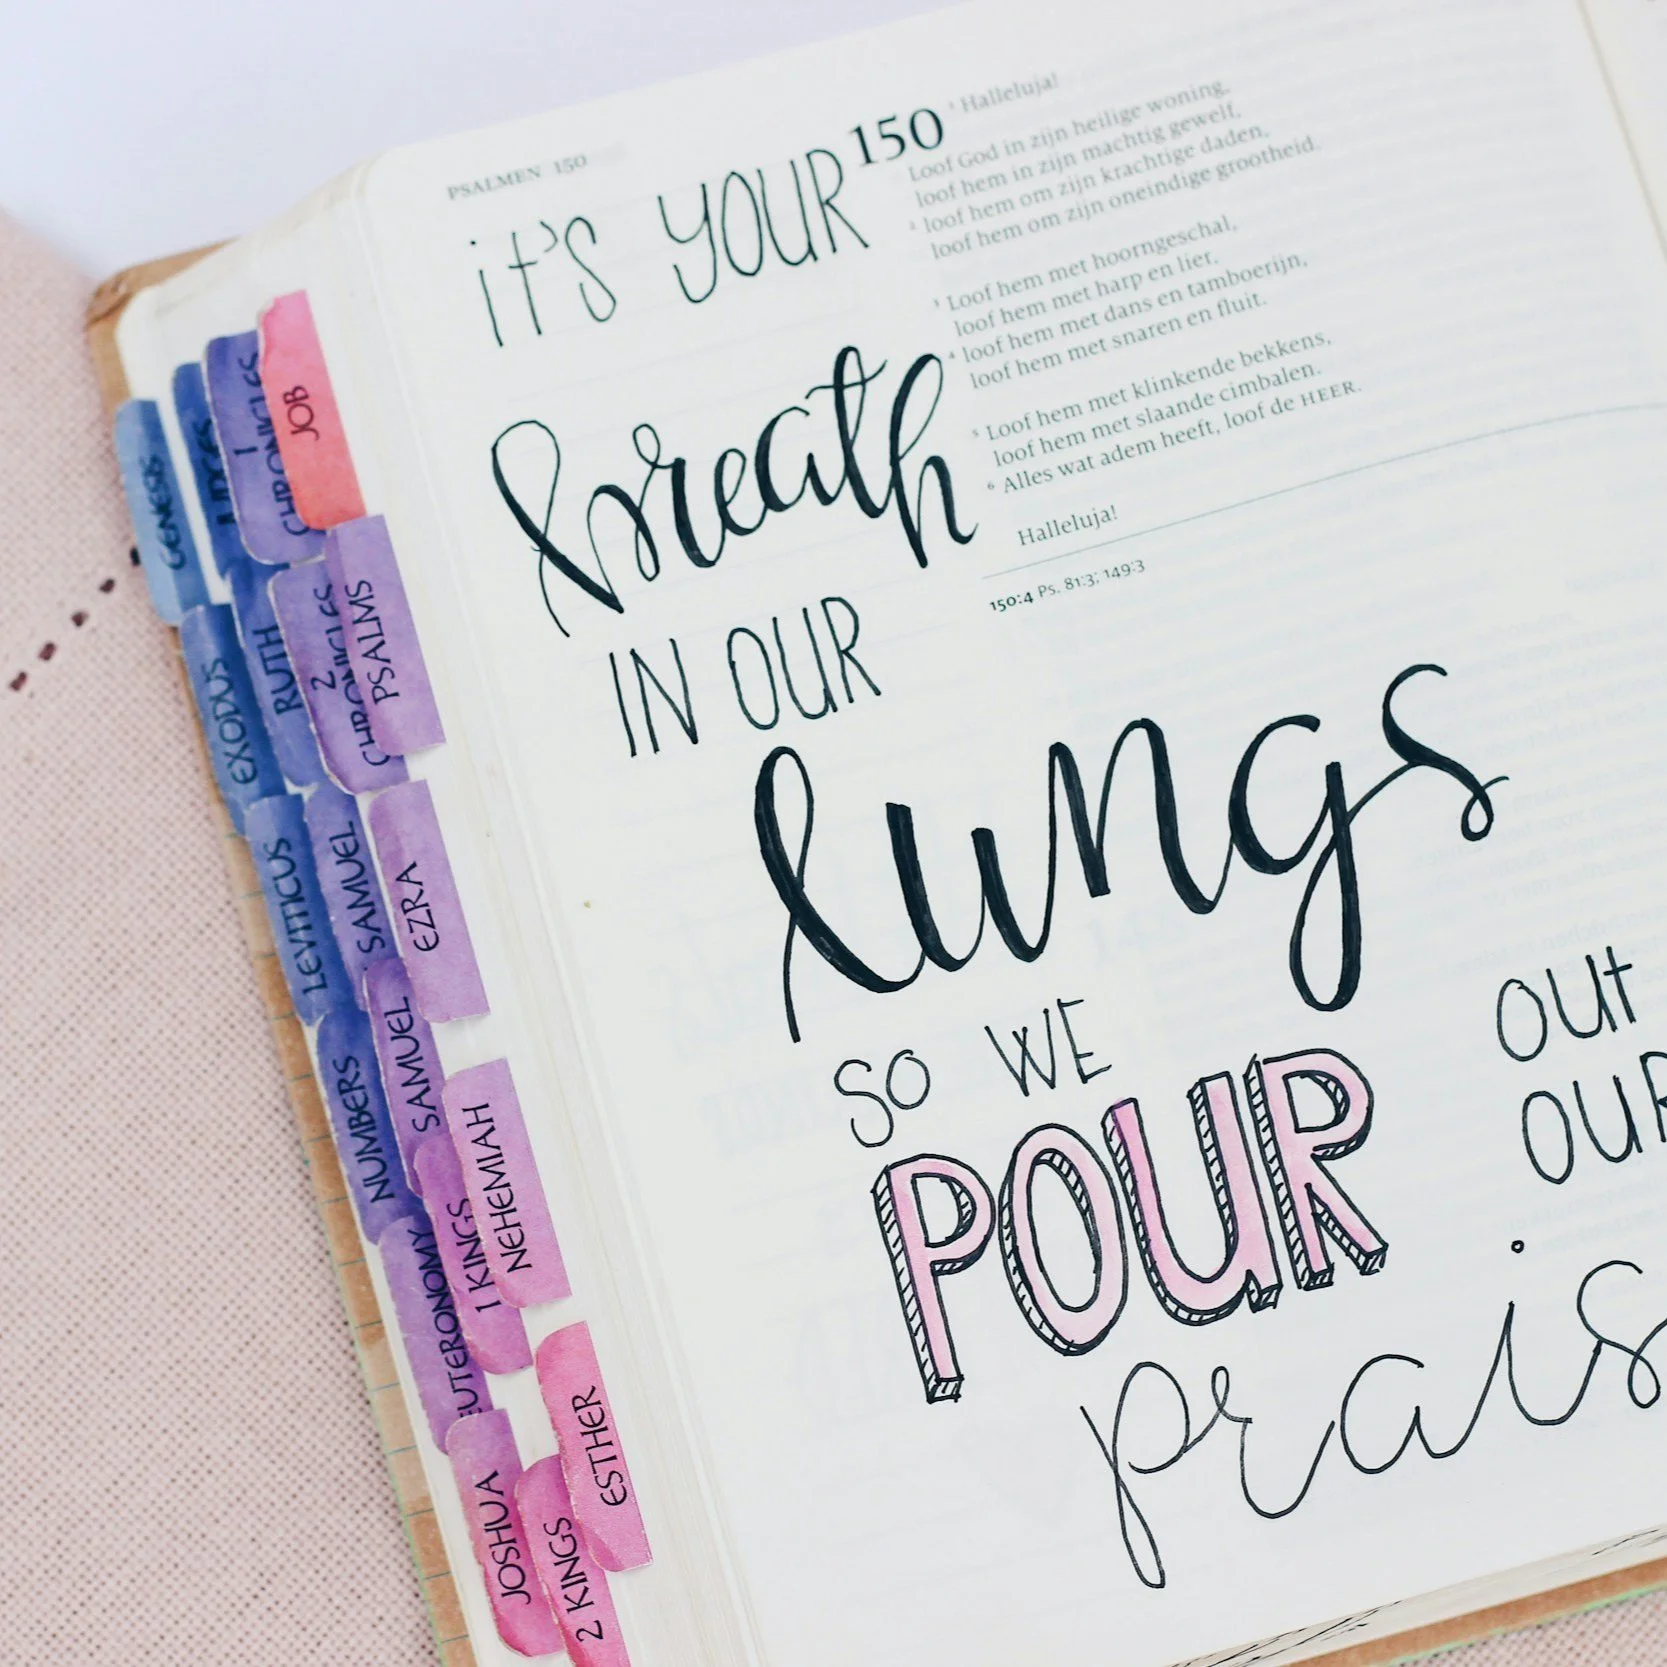 PSALMEN 150
150
¹ Halleluja!
Loof God in zijn heilige woning,
loof hem in zijn machtig gewelf,
² loof hem om zijn krachtige daden,
loof hem om zijn oneindige grootheid.
³ Loof hem met hoorngeschal,
loof hem met harp en lier.
⁴ loof hem met dans en tamboerijn,
loof hem met snaren en fluit.
⁵ Loof hem met klinkende bekkens,
loof hem met slaande cimbalen.
⁶ Alles wat adem heeft, loof de HEER.
Halleluja!
150:4 Ps. 81:3; 149:3
it's YOUR
breath
IN OUR
lungs
SO WE
POUR
OUt
OUR
prais
GENESIS
EXODUS
LEVITICUS
NUMBERS
EUTERONOMY
JOSHUA
RUTH
SAMUEL
SAMUEL
1 KINGS
2 KINGS
1
CHRONICLES
2
CHRONICLES
EZRA
NEHEMIAH
ESTHER
JOB
PSALMS